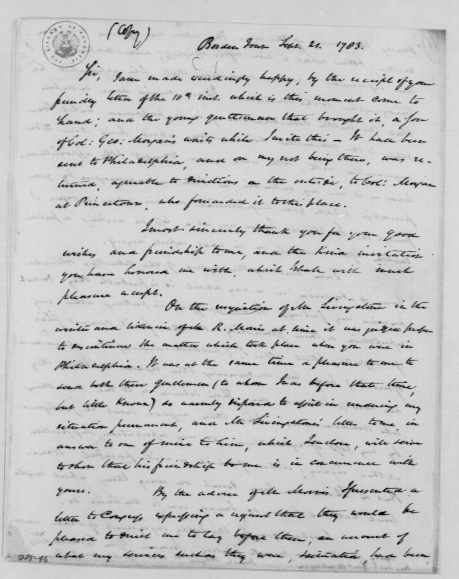 (Copy)
Borden Town Sept. 21. 1783.
Sir, I am made exceedingly happy, by the receipt of your
friendly letter of the 10th inst. which is this moment come to
hand; and the young gentleman that brought it, a son
of Col: Geo: Morgan's waits while I write this — It had been
sent to Philadelphia, and on my not being there, was re-
turned, agreeable to directions on the outside, to Col: Morgan
at Princetown, who forwarded it to this place.
I most sincerely thank you for your good
wishes and friendship to me, and the kind invitation
you have honored me with, which I shall with much
pleasure accept.
On the resignation of Mr Livingston in the
winter and likewise of Mr R. Morris at time it was judged proper
to discontinue the matter which took place when you were in
Philadelphia. It was at the same time a pleasure to me to
find both these gentlemen (to whom I was before that time,
but little known) so warmly disposed to assist in rendering my
situation permanent, and Mr Livingston's letter to me, in
answer to one of mine to him, which I enclose, will serve
to show that his friendship to me is in concurrence with
yours.
By the advice of Mr Morris I presented a
letter to Congress expressing a request that they would be
pleased to direct me to lay before them, an account of
what my services such as they were, and situation, had been